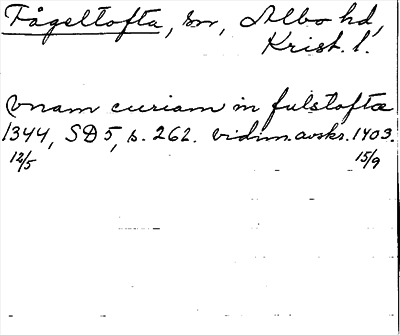 Fågeltofta, sn, Albo hd,
Krist. l.
Unam curiam in fulstoftæ
1344, SD 5, s. 262. vidim. avskr. 1403.
12/5 15/9